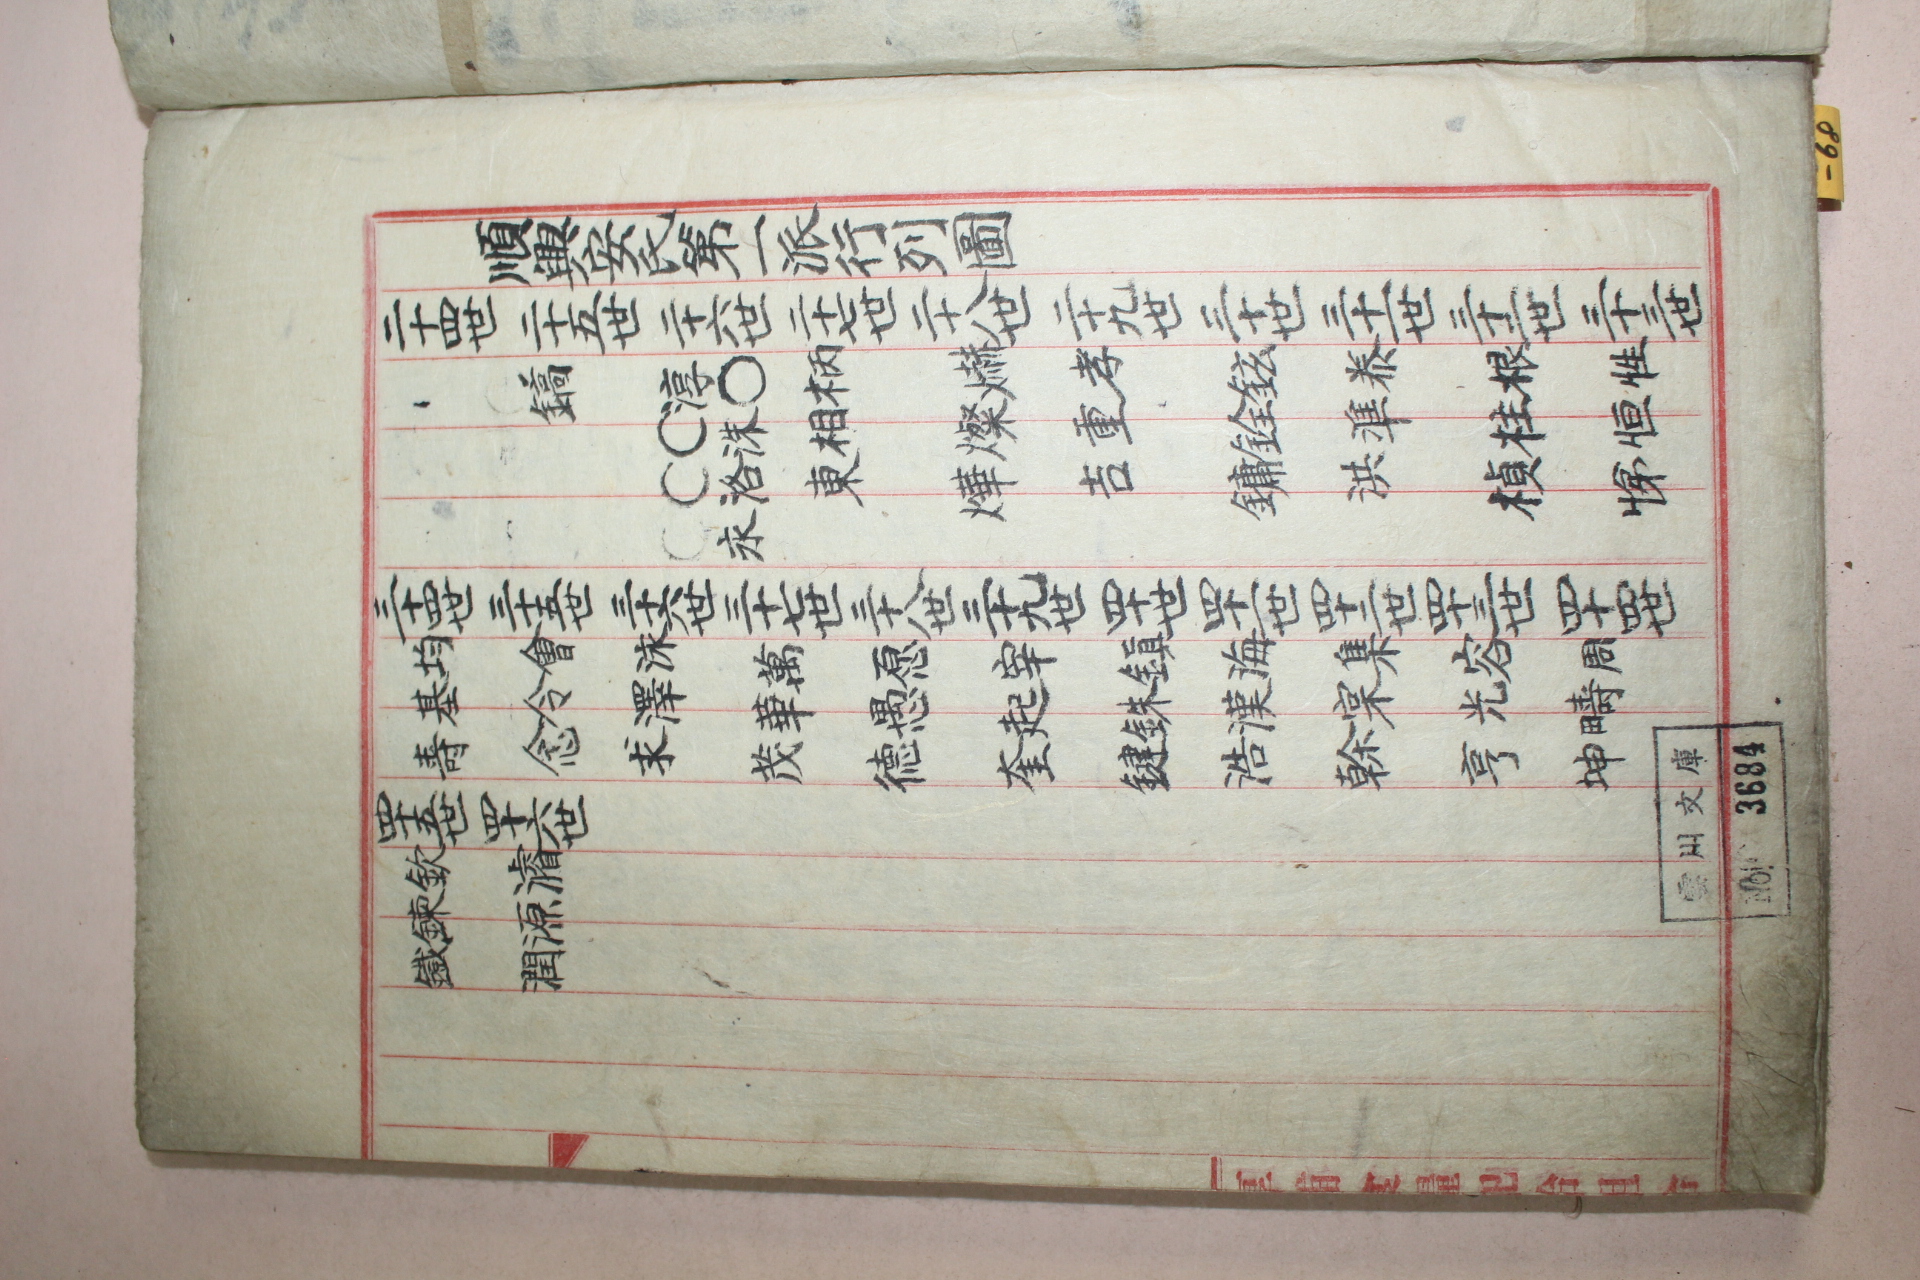 順興安氏第一派行列圖
二十四世 二十五世 二十六世 二十七世 二十八世 二十九世 三十世 三十一世 三十二世 三十三世
鎬 淳○ 柄 爀 孝 鉉 泰 根 性
○洙 相 燦 重 銓 準 桂 恒
○洛 東 燁 吉 鏞 洪 楨 悌
永
三十四世 三十五世 三十六世 三十七世 三十八世 三十九世 四十世 四十一世 四十二世 四十三世 四十四世
均 會 沫 萬 愿 宰 鎭 海 集 容 周
基 令 澤 華 愚 起 銖 漢 光 疇
壽 念 求 茂 德 奎 鍵 浩 榦 亨 坤
四十五世 四十六世
欽 濬
鍊 源
鐵 潤
文庫
No. 3684
-68